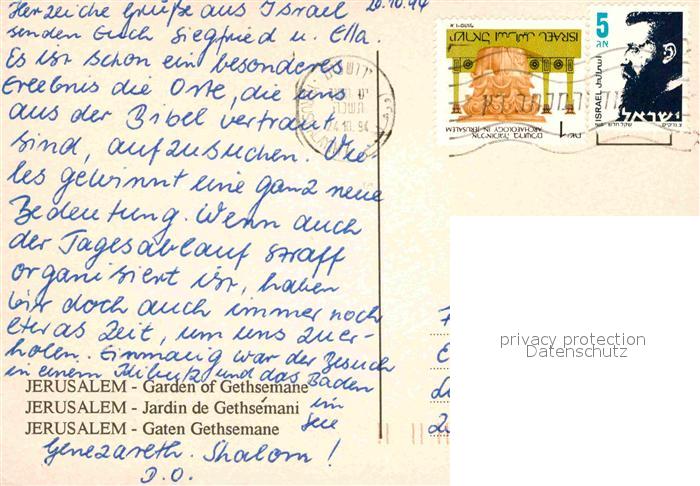 Herzeiche Grüße aus Israel 20.10.94
senden Euch Siegfried u. Ella.
Es ist schon ein besonderes
Erlebnis die Orte, die uns
aus der Bibel vertraut
sind, aufzusuchen. Vie-
les gewinnt eine ganz neue
Bedeutung. Wenn auch
der Tagesablauf straff
organisiert ist, haben
wir doch auch immer noch
etwas Zeit, um uns zu er-
holen. Einmalig war der Besuch
in einem Kibuz und das Baden
im
See
Genezareth. Shalom!
D.O.
JERUSALEM - Garden of Gethsemane
JERUSALEM - Jardin de Gethsémani
JERUSALEM - Gaten Gethsemane
ירושלים
24.10.94
ISRAEL ישראל
ארכיאולוגיה בירושלים
ARCHAEOLOGY IN JERUSALEM
1
5
אג
ISRAEL
ישראל
privacy protection
Datenschutz